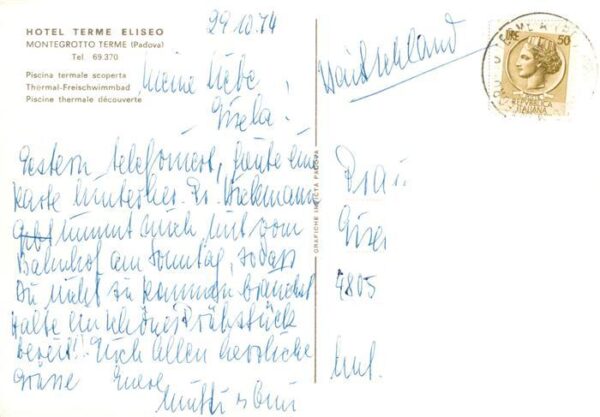 HOTEL TERME ELISEO
MONTEGROTTO TERME (Padova)
Tel. 69.370
Piscina termale scoperta
Thermal-Freischwimmbad
Piscine thermale découverte
29.10.74
Meine liebe
Gisela!
Gestern telefoniert, heute eine
Karte hinterher. Dr.
nimmt mich mit vom
Bahnhof am Sonntag, sodass
Du nicht zu kommen brauchst
Halte ein schönes Frühstück
bereit! Euch allen herzliche
Grüsse Eure
Mutti
GRAFICHE INVICTA PADOVA
Deutschland
LIRE 50
REPUBBLICA
ITALIANA
Frau
4805